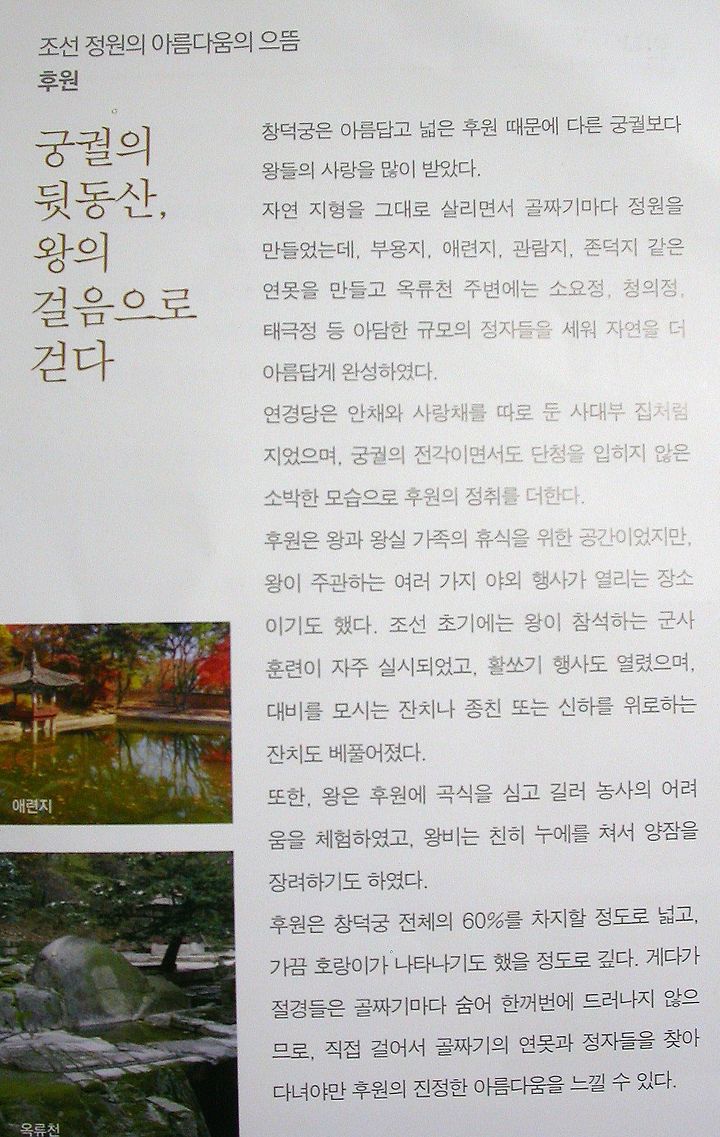 조선 정원의 아름다움의 으뜸
후원
궁궐의
뒷동산,
왕의
걸음으로
걷다
창덕궁은 아름답고 넓은 후원 때문에 다른 궁궐보다
왕들의 사랑을 많이 받았다.
자연 지형을 그대로 살리면서 골짜기마다 정원을
만들었는데, 부용지, 애련지, 관람지, 존덕지 같은
연못을 만들고 옥류천 주변에는 소요정, 청의정,
태극정 등 아담한 규모의 정자들을 세워 자연을 더
아름답게 완성하였다.
연경당은 안채와 사랑채를 따로 둔 사대부 집처럼
지었으며, 궁궐의 전각이면서도 단청을 입히지 않은
소박한 모습으로 후원의 정취를 더한다.
후원은 왕과 왕실 가족의 휴식을 위한 공간이었지만,
왕이 주관하는 여러 가지 야외 행사가 열리는 장소
이기도 했다. 조선 초기에는 왕이 참석하는 군사
훈련이 자주 실시되었고, 활쏘기 행사도 열렸으며,
대비를 모시는 잔치나 종친 또는 신하를 위로하는
잔치도 베풀어졌다.
또한, 왕은 후원에 곡식을 심고 길러 농사의 어려
움을 체험하였고, 왕비는 친히 누에를 쳐서 양잠을
장려하기도 하였다.
후원은 창덕궁 전체의 60%를 차지할 정도로 넓고,
가끔 호랑이가 나타나기도 했을 정도로 깊다. 게다가
절경들은 골짜기마다 숨어 한꺼번에 드러나지 않으
므로, 직접 걸어서 골짜기의 연못과 정자들을 찾아
다녀야만 후원의 진정한 아름다움을 느낄 수 있다.
애련지
옥류천